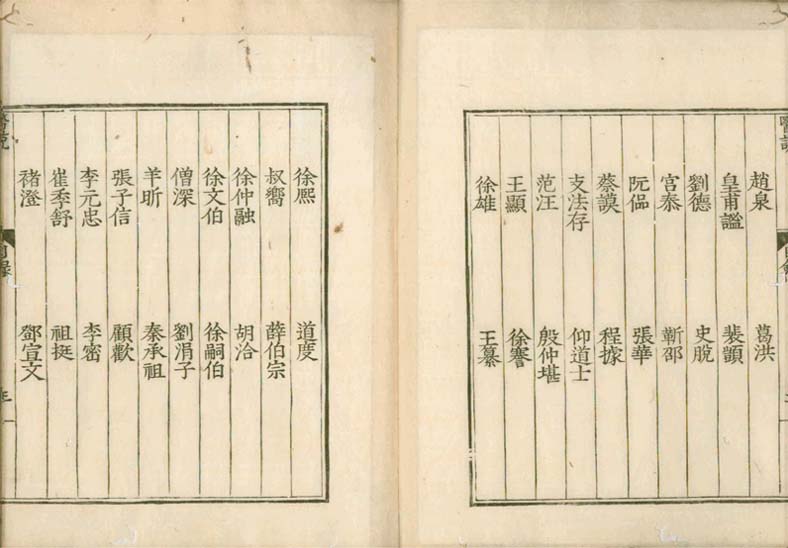 趙泉 葛洪
皇甫謐 裴頠
劉德 史脫
宮泰 靳邵
阮偘 張華
蔡謨 程據
支法存 仰道士
范汪 殷仲堪
王顯 徐謇
徐雄 王纂
徐熈 道度
叔嚮 薛伯宗
徐仲融 胡洽
徐文伯 徐嗣伯
僧深 劉涓子
羊昕 秦承祖
張子信 顧歡
李元忠 李密
崔季舒 祖挺
褚澄 鄧宣文